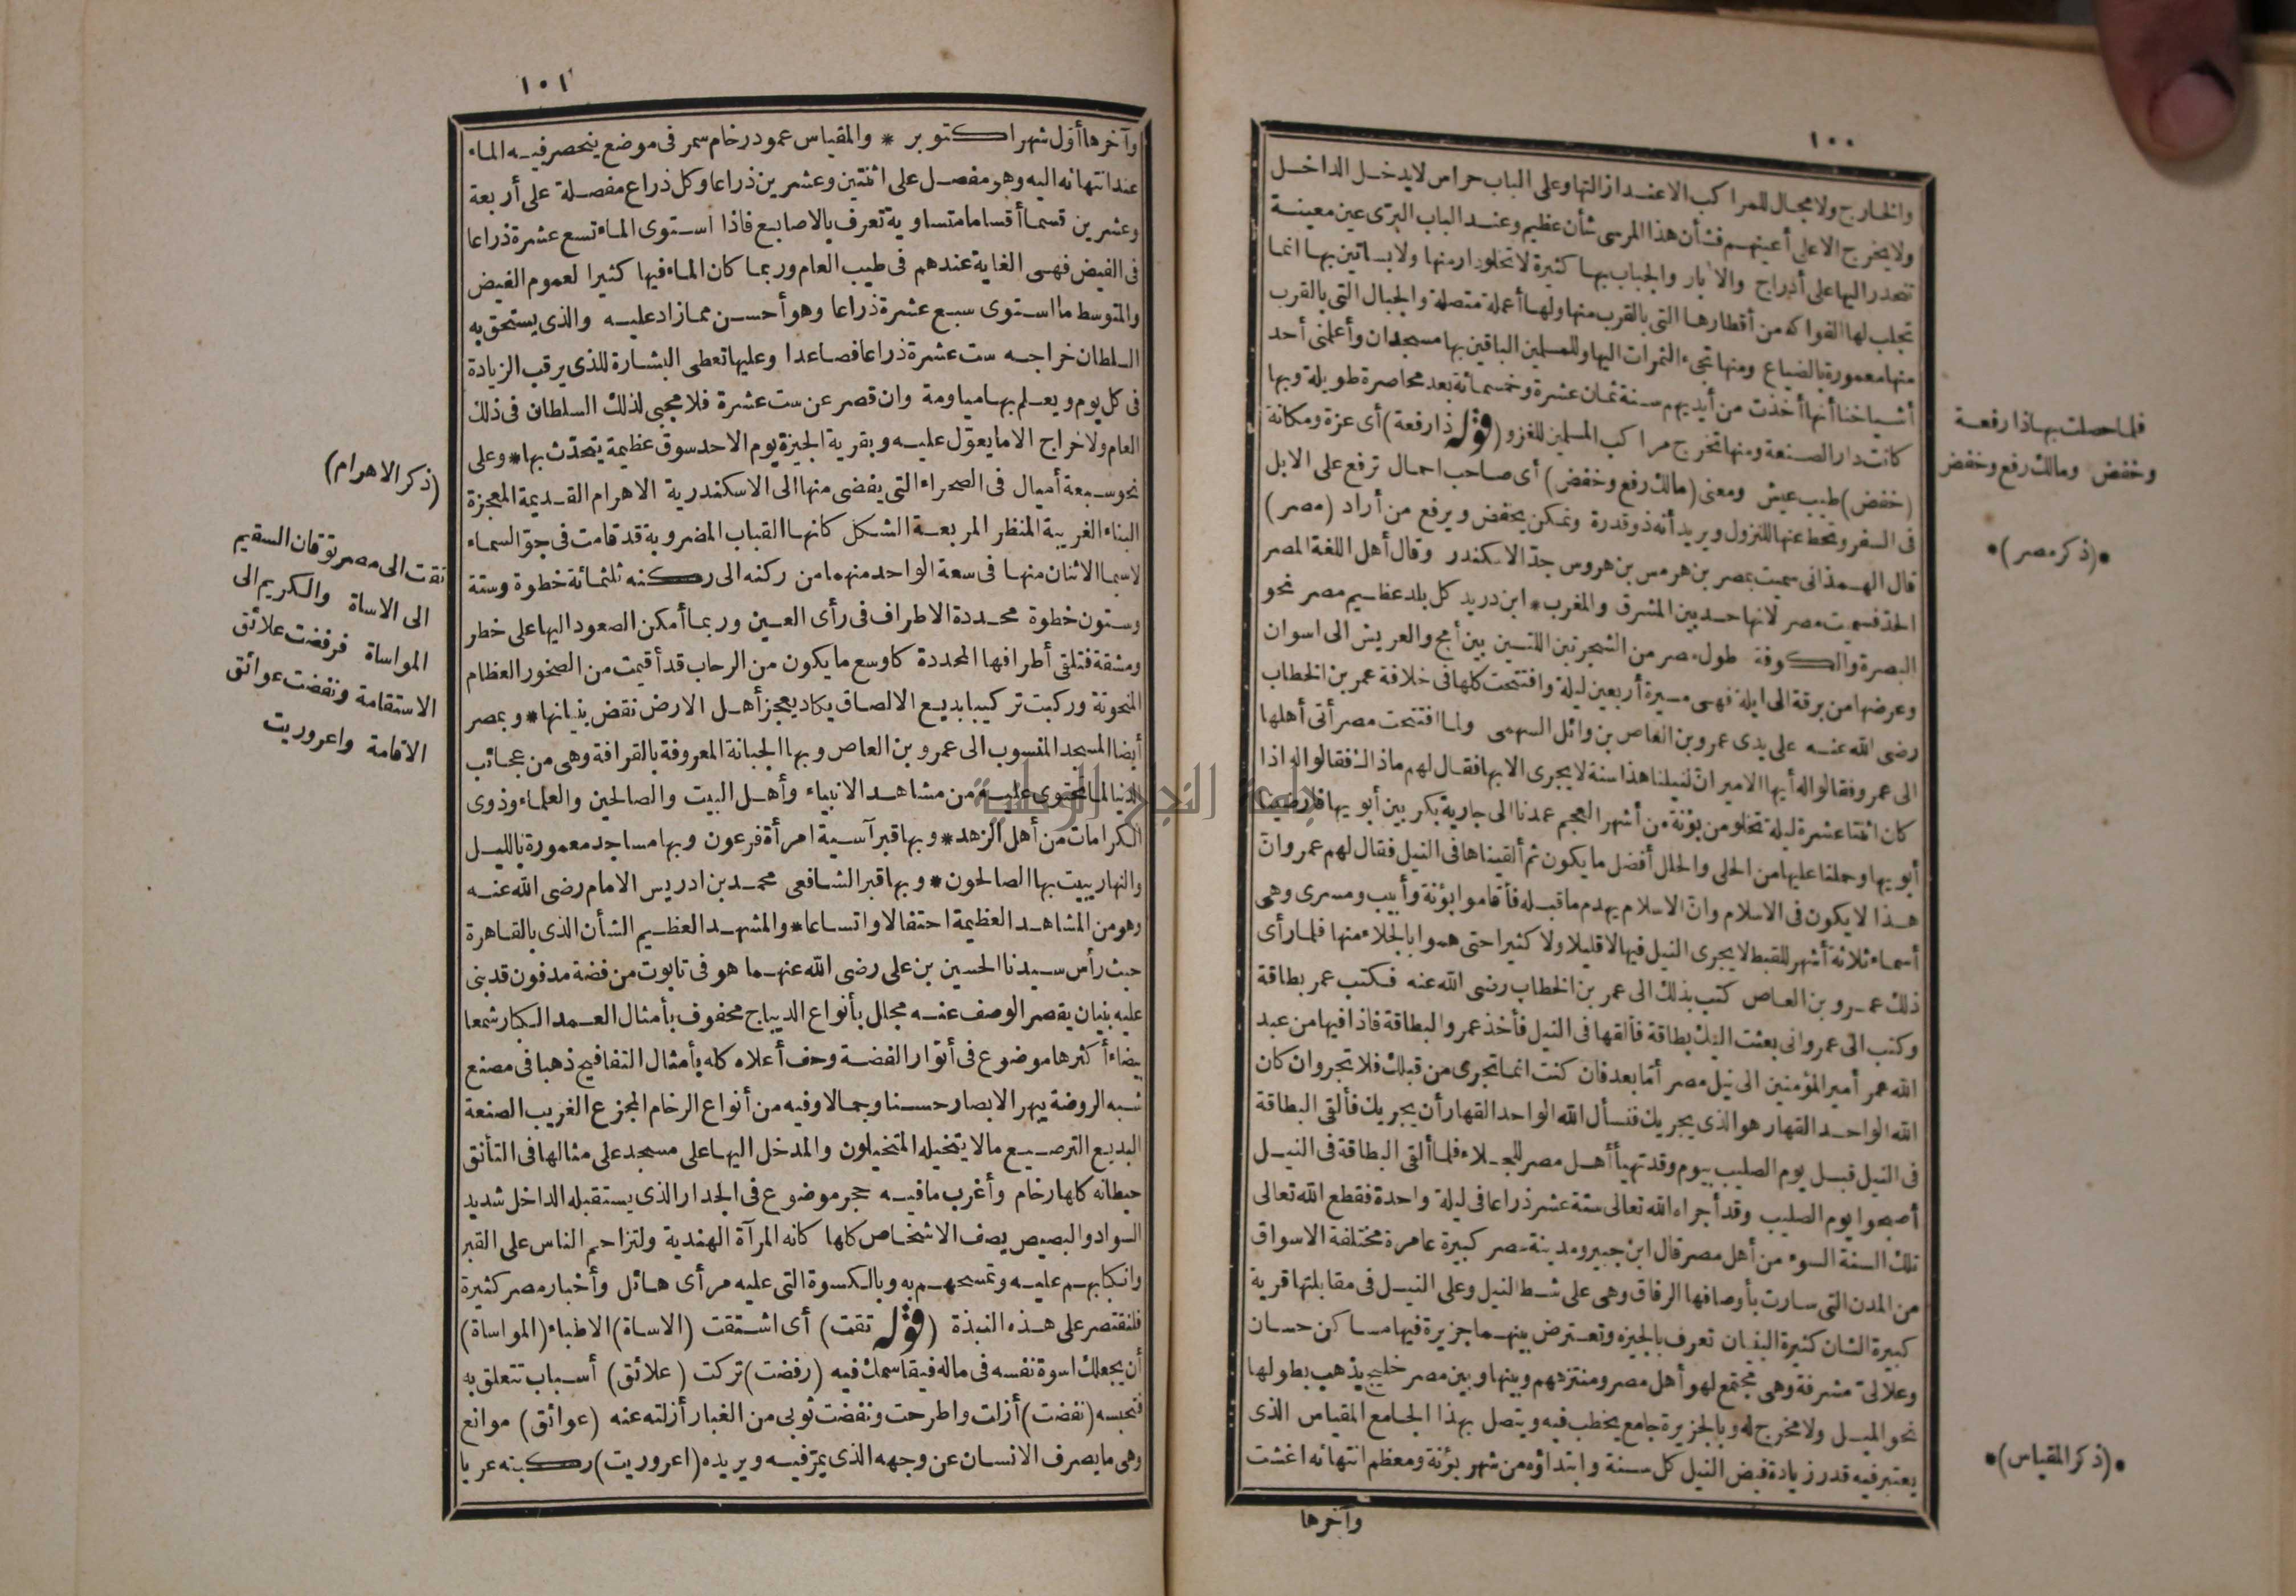 ١٠٠
والخارج ولا مجال للمراكب الا عند ازالتها وعلى الباب حراس لا يدخل الداخل
ولا يخرج الا على أعينهم فشأن هذا المرسى شأن عظيم وعند الباب البرّى عين معينة
تنحدر اليها على أدراج والآبار والجباب بها كثيرة لا تخلو دار منها ولا بساتين بها انما
تجلب لها الفواكه من أقطارها التى بالقرب منها ولها أعملة متصلة والجبال التى بالقرب
منها معمورة بالضياع ومنها تجىء الثمرات اليها وللمسلمين الباقين بها مسجدان وأعلمنى أحد
أشياخنا أنها أخذت من أيديهم سنة ثمان عشرة وخمسمائة بعد محاصرة طويلة وبها
كانت دار الصنعة ومنها تخرج مراكب المسلمين للغزو (قوله ذا رفعة) أى عزة ومكانة
(خفض) طيب عيش ومعنى (مالك رفع وخفض) أى صاحب احمال ترفع على الابل
فى السفر وتحط عنها للنزول ويريد أنه ذو قدرة وتمكن يخفض ويرفع من أراد (مصر)
قال الهمذانى سميت بمصر بن هرمس بن هروس جدّ الاسكندر وقال أهل اللغة المصر
الحدّ فسميت مصر لانها حد بين المشرق والمغرب * ابن دريد كل بلد عظيم مصر نحو
البصرة والكوفة طول مصر من الشجرتين اللتين بين أمج والعريش الى اسوان
وعرضها من برقة الى ايلة فهى مسيرة أربعين ليلة وافتتحت كلها فى خلافة عمر بن الخطاب
رضى الله عنه على يدى عمرو بن العاص بن وائل السهمى ولما افتتحت مصر أتى أهلها
الى عمرو فقالوا له أيها الامير انّ لنيلنا هذا سنة لا يجرى الا بها فقال لهم ماذاك فقالوا له اذا
كان اثنتا عشرة ليلة تخلو من بؤنة من أشهر العجم عمدنا الى جارية بكر بين أبويها فارضينا
أبويها وحملنا عليها من الحلى والحلل أفضل ما يكون ثم ألقيناها فى النيل فقال لهم عمرو انّ
هذا لا يكون فى الاسلام وانّ الاسلام يهدم ما قبله فأقاموا بؤنة وأبيب ومسرى وهى
أسماء ثلاثة أشهر للقبط لا يجرى النيل فيها لا قليلا ولا كثيرا حتى هموا بالجلاء منها فلما رأى
ذلك عمرو بن العاص كتب بذلك الى عمر بن الخطاب رضى الله عنه فكتب عمر بطاقة
وكتب الى عمرو انى بعثت اليك بطاقة فألقها فى النيل فأخذ عمرو البطاقة فاذا فيها من عبد
الله عمر أمير المؤمنين الى نيل مصر أمّا بعد فان كنت انما تجرى من قبلك فلا تجر وان كان
الله الواحد القهار هو الذى يجريك فنسأل الله الواحد القهار أن يجريك فألقى البطاقة
فى النيل قبل يوم الصليب بيوم وقد تهيأ أهل مصر للجلاء فلما ألقى البطاقة فى النيل
أصبحوا يوم الصليب وقد أجراه الله تعالى ستة عشر ذراعا فى ليلة واحدة فقطع الله تعالى
تلك السنة السوء من أهل مصر قال ابن جبير ومدينة مصر كبيرة عامرة مختلفة الاسواق
من المدن التى سارت بأوصافها الرفاق وهى على شط النيل وعلى النيل فى مقابلتها قرية
كبيرة الشان كثيرة البنيان تعرف بالجيزه وتعترض بينهما جزيرة فيها مساكن حسان
وعلالىّ مشرفة وهى مجتمع لهو أهل مصر ومنتزههم وبينها وبين مصر خليج يذهب بطولها
نحو الميل ولا مخرج له وبالجزيرة جامع يخطب فيه ويتصل بهذا الجامع المقياس الذى
يعتبر فيه قدر زيادة فيض النيل كل سنة وابتداؤه من شهر بؤنة ومعظم انتهائه اغشت
وآخرها
فلما حصلت بها ذا رفعة
وخفض ومالك رفع وخفض
*(ذكر مصر)*
*(ذكر المقياس)*
١٠١
وآخرها أوّل شهر اكتوبر * والمقياس عمود رخام سمر فى موضع ينحصر فيه الماء
عند انتهائه اليه وهو مفصل على اثنتين وعشرين ذراعا وكل ذراع مفصلة على أربعة
وعشرين قسما أقساما متساوية تعرف بالاصابع فاذا استوى الماء تسع عشرة ذراعا
فى الفيض فهى الغاية عندهم فى طيب العام وربما كان الماء فيها كثيرا لعموم الفيض
والمتوسط ما استوى سبع عشرة ذراعا وهو أحسن مما زاد عليه والذى يستحق به
السلطان خراجه ست عشرة ذراعا فصاعدا وعليها تعطى البشارة للذى يرقب الزيادة
فى كل يوم ويعلم بها مياومة وان قصر عن ست عشرة فلا مجبى لذلك السلطان فى ذلك
العام ولا خراج الا ما يعوّل عليه وبقرية الجيزة يوم الاحد سوق عظيمة يتحدّث بها * وعلى
نحو سبعة أميال فى الصحراء التى يفضى منها الى الاسكندرية الاهرام القديمة المعجزة
البناء الغريبة المنظر المربعة الشكل كانها القباب المضروبة قد قامت فى جوّ السماء
لاسيما الاثنان منها فى سعة الواحد منهما من ركنه الى ركنه ثلثمائة خطوة وستة
وستون خطوة محددة الاطراف فى رأى العين وربما أمكن الصعود اليها على خطر
ومشقة فتلقى أطرافها المحددة كاوسع ما يكون من الرحاب قد أقيمت من الصخور العظام
المنحوتة وركبت تركيبا بديع الالصاق يكاد يعجز أهل الارض نقض بنيانها * وبمصر
أيضا المسجد المنسوب الى عمرو بن العاص وبها الجبانة المعروفة بالقرافة وهى من عجائب
الدنيا لما تحتوى عليه من مشاهد الانبياء وأهل البيت والصالحين والعلماء وذوى
الكرامات من أهل الزهد * وبها قبر آسية امرأة فرعون وبها مساجد معمورة بالليل
والنهار يبيت بها الصالحون * وبها قبر الشافعى محمد بن ادريس الامام رضى الله عنه
وهو من المشاهد العظيمة احتفالا واتساعا * والمشهد العظيم الشأن الذى بالقاهرة
حيث رأس سيدنا الحسين بن على رضى الله عنهما هو فى تابوت من فضة مدفون قد بنى
عليه بنيان يقصر الوصف عنه مجلل بأنواع الديباج محفوف بأمثال العمد الكبار شمعا
بيضاء أكثرها موضوع فى أتوار الفضة وحف أعلاه كله بأمثال التفافيح ذهبا فى مصنع
شبه الروضة يبهر الابصار حسنا وجمالا وفيه من أنواع الرخام المجزع الغريب الصنعة
البديع الترصيع ما لا يتخيله المتخيلون والمدخل اليها على مسجد على مثالها فى التأنق
حيطانه كلها رخام وأغرب ما فيه حجر موضوع فى الجدار الذى يستقبله الداخل شديد
السواد والبصيص يصف الاشخاص كلها كانه المرآة الهندية ولتزاحم الناس على القبر
وانكبابهم عليه وتمسحهم به وبالكسوة التى عليه مرأى هائل وأخبار مصر كثيرة
فلنقتصر على هذه النبذة (قوله تقت) أى اشتقت (الاساة) الاطباء (المواساة)
أن يجعلك اسوة نفسه فى ماله فيقاسمك فيه (رفضت) تركت (علائق) أسباب تتعلق به
فتحبسه (نفضت) أزلت واطرحت ونفضت ثوبى من الغبار أزلته عنه (عوائق) موانع
وهى ما يصرف الانسان عن وجهه الذى يمرّ فيه ويريده (اعروريت) ركبته عريا
(ذكر الاهرام)
تقت الى مصر توقان السقيم
الى الاساة والكريم الى
المواساة فرفضت علائق
الاستقامة ونفضت عوائق
الاقامة واعروريت
جامعة النجاح الوطنية